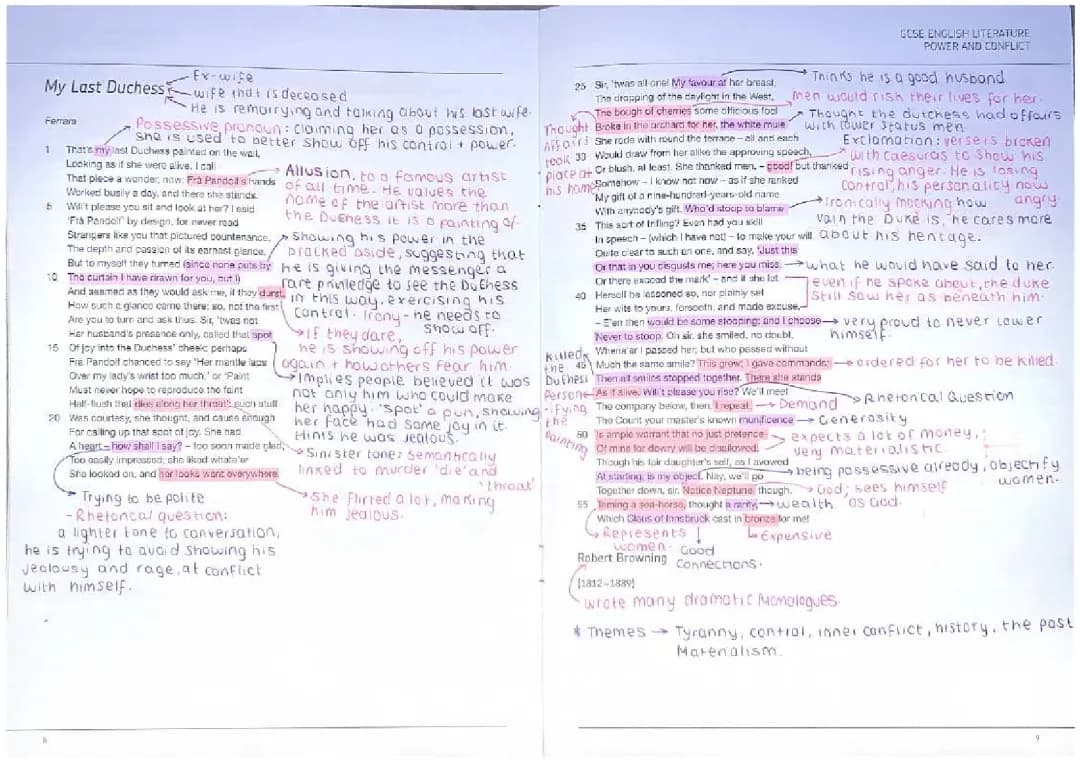 GCSE ENGLISH LITERATURE
POWER AND CONFLICT
My Last Duchess
Ex-wife
wife that is deceased
He is remarrying and talking about his last wife.
Ferrara
Possessive pronoun: claiming her as a possession,
she is used to better show off his control + power.
1 That's my last Duchess painted on the wall,
Looking as if she were alive. I call
That piece a wonder, now: Frà Pandolf's hands
Worked busily a day, and there she stands.
5 Will't please you sit and look at her? I said
'Frà Pandolf' by design, for never read
Strangers like you that pictured countenance,
The depth and passion of its earnest glance,
But to myself they turned (since none puts by
10 The curtain I have drawn for you, but I)
And seemed as they would ask me, if they durst,
How such a glance came there; so, not the first
Are you to turn and ask thus. Sir, 'twas not
Her husband's presence only, called that spot
15 Of joy into the Duchess' cheek: perhaps
Frà Pandolf chanced to say 'Her mantle laps
Over my lady's wrist too much,' or 'Paint
Must never hope to reproduce the faint
Half-flush that dies along her throat': such stuff
20 Was courtesy, she thought, and cause enough
For calling up that spot of joy. She had
A heart – how shall I say? – too soon made glad,
Too easily impressed; she liked whate'er
She looked on, and her looks went everywhere.
Allusion, to a famous artist
of all time. He values the
name of the artist more than
the Duchess it is a painting of.
Showing his power in the
bracked aside, suggesting that
he is giving the messenger a
rare privledge to see the Duchess
in this way, exercising his
control. Irony - he needs to
show off.
If they dare,
he is showing off his power
again + how others fear him.
Implies people believed it was
not only him who could make
her happy. 'spot' a pun, showing
her face had some joy in it.
Hints he was jealous.
Sinister tone: Semantically
linked to murder 'die' and
'throat'
She flirted a lot, making
him jealous.
Trying to be polite
- Rhetorical question:
a lighter tone to conversation,
he is trying to avoid showing his
jealousy and rage, at conflict
with himself.
8
25 Sir, 'twas all one! My favour at her breast,
The dropping of the daylight in the West,
The bough of cherries some officious fool
Broke in the orchard for her, the white mule
She rode with round the terrace – all and each
30 Would draw from her alike the approving speech,
Or blush, at least. She thanked men, – good! but thanked
Somehow – I know not how – as if she ranked
My gift of a nine-hundred-years-old name
With anybody's gift. Who'd stoop to blame
35 This sort of trifling? Even had you skill
In speech – (which I have not) – to make your will
Quite clear to such an one, and say, 'Just this
Or that in you disgusts me; here you miss,
Or there exceed the mark' – and if she let
40 Herself be lessoned so, nor plainly set
Her wits to yours, forsooth, and made excuse,
– E'en then would be some stooping; and I choose
Never to stoop. Oh sir, she smiled, no doubt,
Whene'er I passed her; but who passed without
45 Much the same smile? This grew; I gave commands;
Then all smiles stopped together. There she stands
As if alive. Will't please you rise? We'll meet
The company below, then. I repeat,
The Count your master's known munificence
50 Is ample warrant that no just pretence
Of mine for dowry will be disallowed;
Though his fair daughter's self, as I avowed
At starting, is my object. Nay, we'll go
Together down, sir. Notice Neptune, though,
55 Taming a sea-horse, thought a rarity,
Which Claus of Innsbruck cast in bronze for me!
Thinks he is a good husband
men would risk their lives for her.
Thought the dutchess had affairs
with lower status men.
Thought
Affairs
took
place at
his home
Exclamation: verse is broken
with caesuras to show his
rising anger. He is losing
control, his personality now
angry.
Ironically mocking how
vain the Duke is, he cares more
about his heritage.
what he would have said to her.
even if he spoke about, the duke
still saw her as beneath him.
very proud to never lower
himself.
ordered for her to be killed.
Killed
the
Duchess
Person-
ifying
the
Painting
Rhetorical Question
Demand
Generosity
expects a lot of money,
very materialistic.
being possessive already, objectify
women.
God; sees himself
as God.
wealth
Represents
women.
Good
connections.
Expensive
Robert Browning
(1812–1889)
wrote many dramatic Monologues.
* Themes → Tyranny, control, inner conflict, history, the past
Materialism.
9